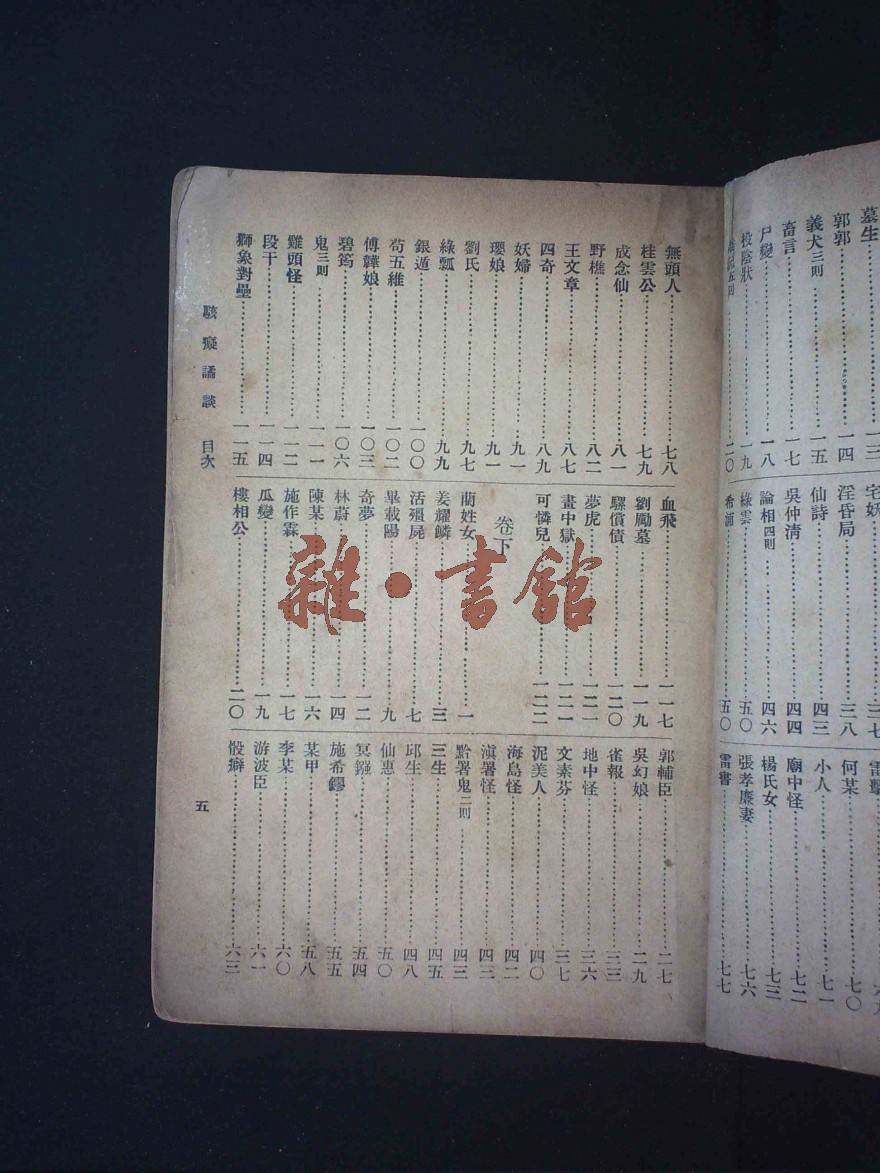 墓生……一三
郭郭……一四
義犬三則……一五
畜言……一七
尸變……一八
投陰狀……一九
二〇
宅妖……三七
淫昏局……三八
仙詩……四三
吳仲清……四四
論相四則……四六
綠雲……五〇
希浦……五〇
何某……七〇
小人……七一
廟中怪……七二
楊氏女……七三
張孝廉妻……七六
雷書……七七
無頭人……七八
桂雲公……七九
成念仙……八一
野樵……八二
王文章……八七
四奇……八九
妖婦……九一
瓔娘……九一
劉氏……九七
綠瓢……九九
銀遁……一〇〇
苟五維……一〇二
傅韡娘……一〇三
碧筠……一〇六
鬼三則……一一一
雞頭怪……一一二
段干……一一四
獅象對壘……一一五
血飛……一一七
劉勵墓……一一九
騾償債……一二〇
夢虎……一二一
畫中獄……一二一
可憐兒……一二二
卷下
藺姓女……一
姜耀鱗……三
活殭屍……七
畢載陽……九
奇夢……一二
林蔚……一四
陳某……一六
施作霖……一七
瓜變……一九
樓相公……二〇
郭輔臣……二七
吳幻娘……二九
雀報……三三
地中怪……三六
文素芬……三七
泥美人……四〇
海島怪……四二
滇署怪……四三
黔署鬼二則……四三
三生……四五
邱生……四八
仙惠……五〇
冥鏹……五四
施希鏐……五五
某甲……五八
李某……六〇
游波臣……六一
骰癖……六三
駭癡譎談 目次
五
雜·書館